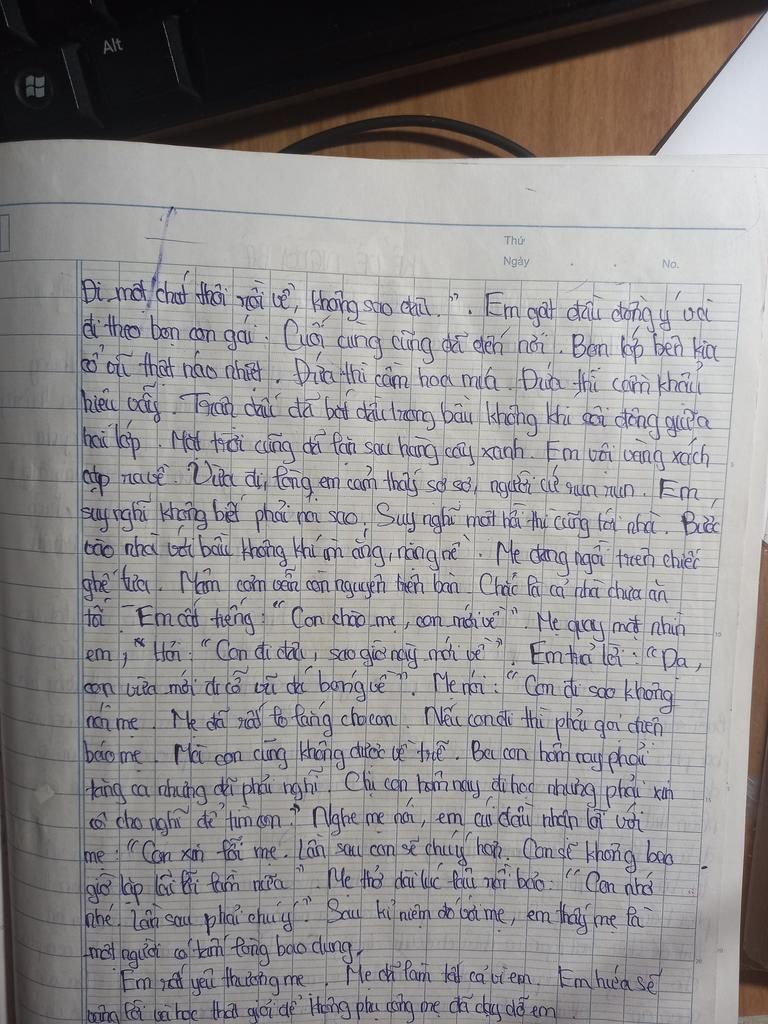 Alt
Thứ
Ngày . . No.
Đi một chút thôi rồi về, không sao đâu.". Em gật đầu đồng ý với
đi theo bạn con gái. Cuối cùng cũng đã đến nơi. Bạn lớp bên kia
cổ vũ thật náo nhiệt. Đứa thì cầm hoa múa. Đứa thì cầm khẩu
hiệu vẫy. Trận đấu đã bắt đầu trong bầu không khí sôi động giữa
hai lớp. Mặt trời cũng đã lặn sau hàng cây xanh. Em vội vàng xách
cặp ra về. Vừa đi, lòng em cảm thấy sợ sợ, người cứ run run. Em,
suy nghĩ không biết phải nói sao. Suy nghĩ một hồi thì cũng tới nhà. Bước
vào nhà với bầu không khí im ắng, nặng nề. Mẹ đang ngồi trên chiếc
ghế tựa. Mâm cơm vẫn còn nguyên trên bàn. Chắc là cả nhà chưa ăn
tối. Em cất tiếng: "Con chào mẹ, con mới về". Mẹ quay mặt nhìn
em, "Hỏi: "Con đi đâu, sao giờ này mới về". Em trả lời: "Dạ,
con vừa mới đi cổ vũ đá bóng về". Mẹ nói: "Con đi sao không
nói mẹ. Mẹ đã rất lo lắng cho con. Nếu con đi thì phải gọi điện
báo mẹ. Mà con cũng không được về trễ. Ba con hôm nay phải
tăng ca nhưng đã phải nghỉ. Chị con hôm nay đi học nhưng phải xin
cô cho nghỉ để tìm con." Nghe mẹ nói, em cúi đầu nhận lỗi với
mẹ: "Con xin lỗi mẹ. Lần sau con sẽ chú ý hơn. Con sẽ không bao
giờ lặp lại lỗi lầm nữa". Mẹ thở dài lúc lâu rồi bảo: "Con nhớ
nhé. Lần sau phải chú ý". Sau kỉ niệm đó với mẹ, em thấy mẹ là
một người có tấm lòng bao dung.
Em rất yêu thương mẹ. Mẹ đã làm tất cả vì em. Em hứa sẽ
vâng lời và học thật giỏi để không phụ công mẹ đã dạy dỗ em.